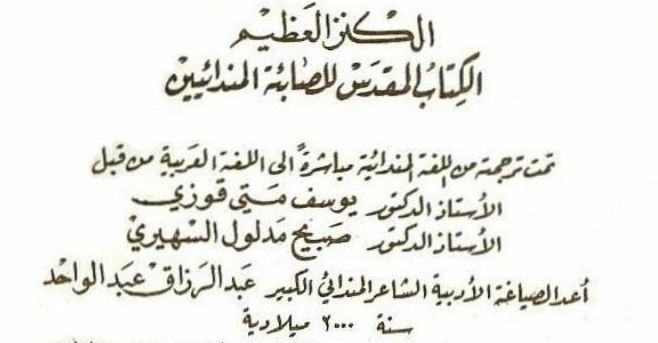 الكنز العظيم
الكِتابُ المقدّس للصابئة المندائيين
تمت ترجمته من اللغة المندائية مباشرةً الى اللغة العربية من قبل
الأستاذ الدكتور يوسف مَتي قوزي
الأستاذ الدكتور صَبيح مَدلول السهيري
أعد الصياغة الأدبية الشاعر المندائي الكبير عَبد الرزاق عَبد الواحد
سنة ٢٠٠٠ ميلادية